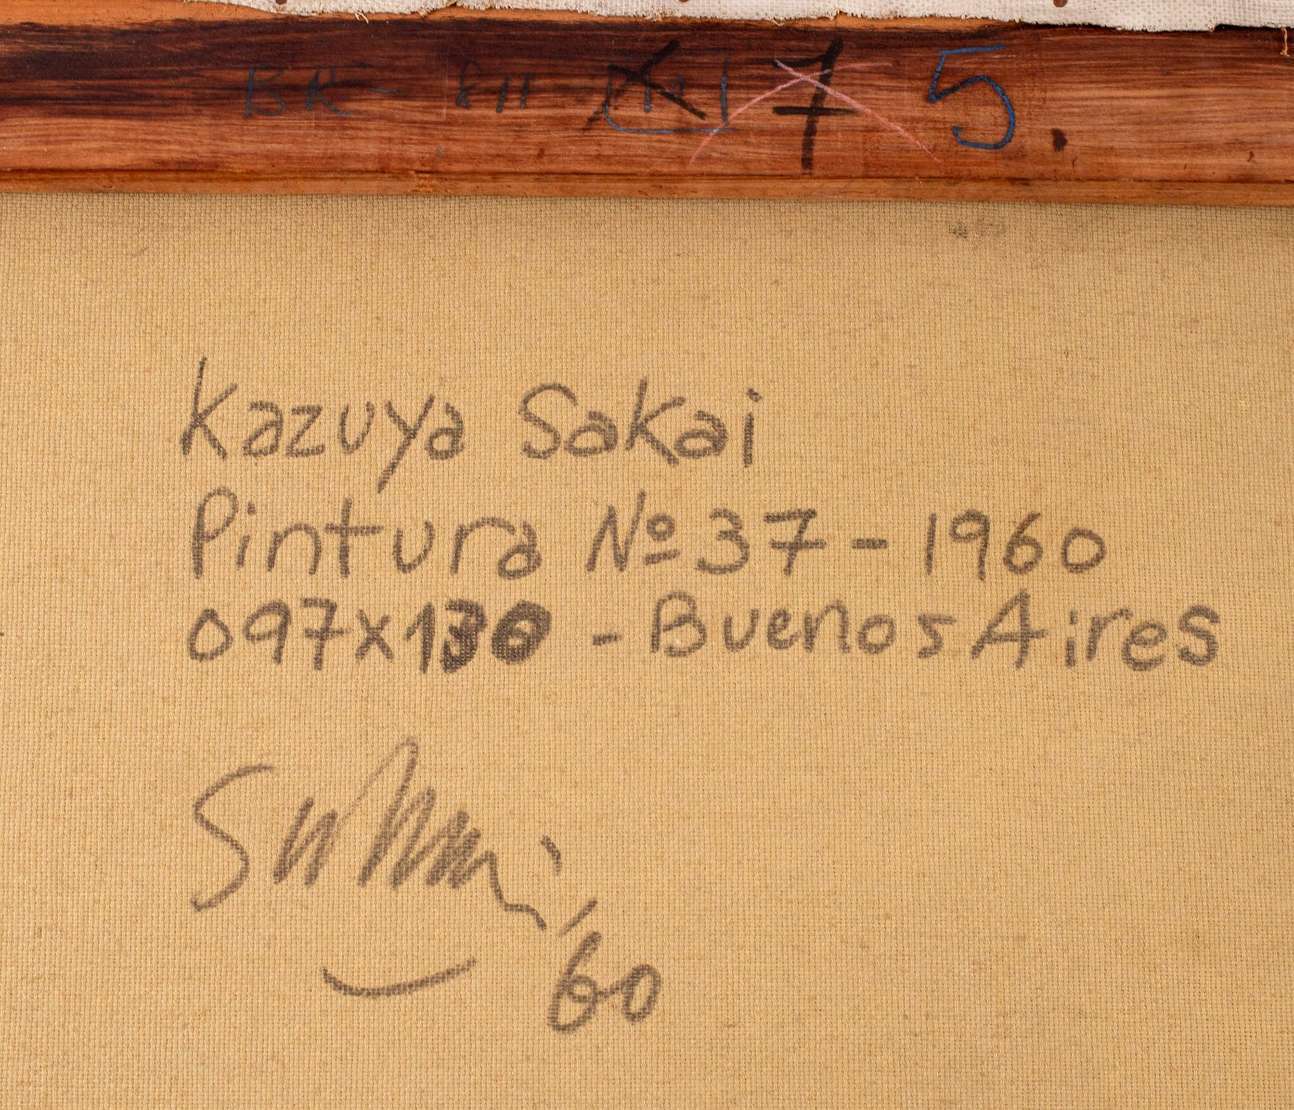 7 5.
Kazuya Sakai
Pintura Nº 37 - 1960
097x130 - Buenos Aires
Sakai '60